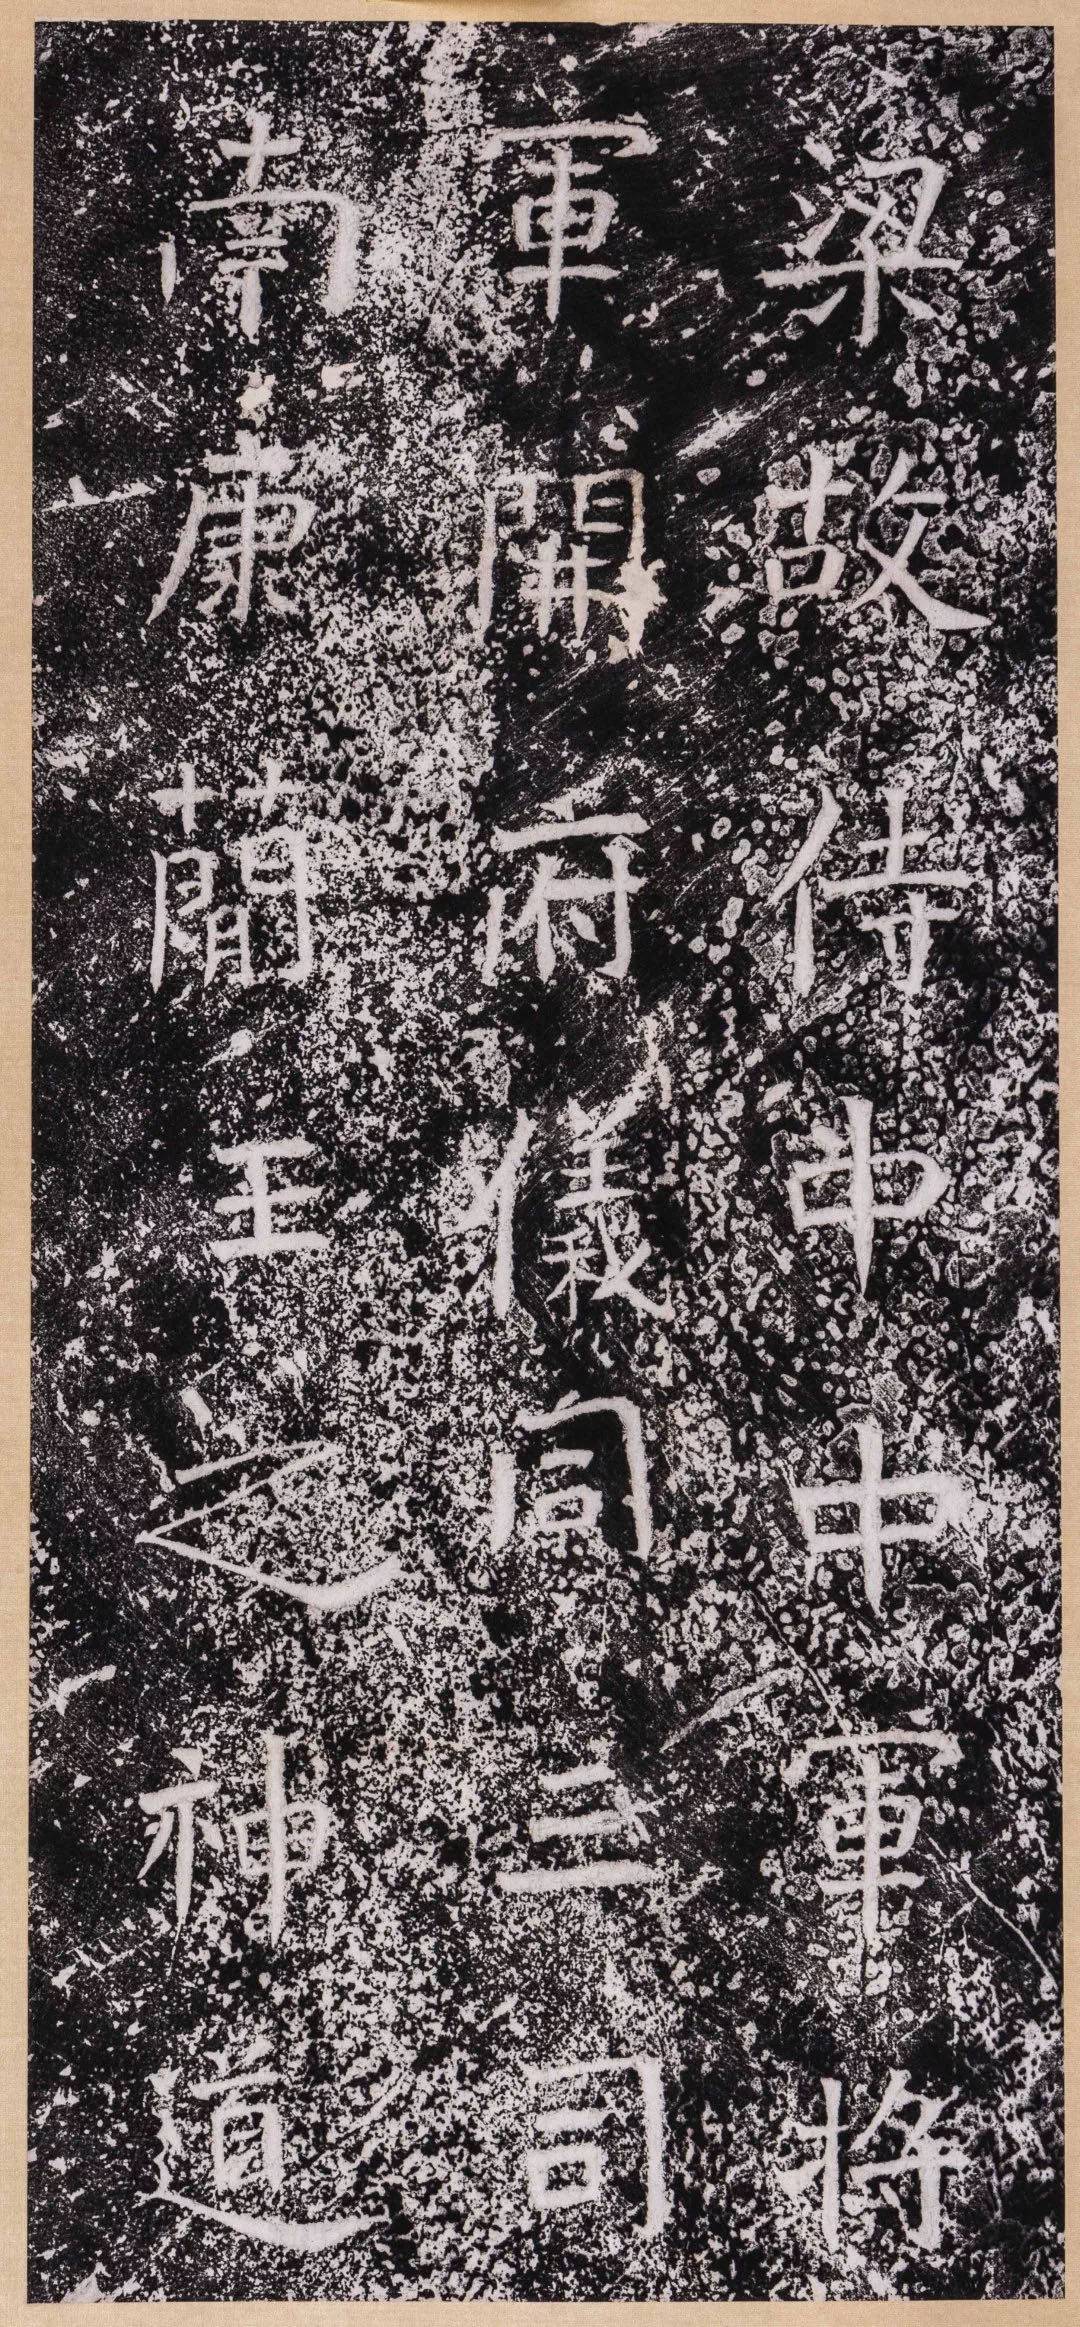 梁故侍中中軍將
軍開府儀同三司
南康蕳王之神道